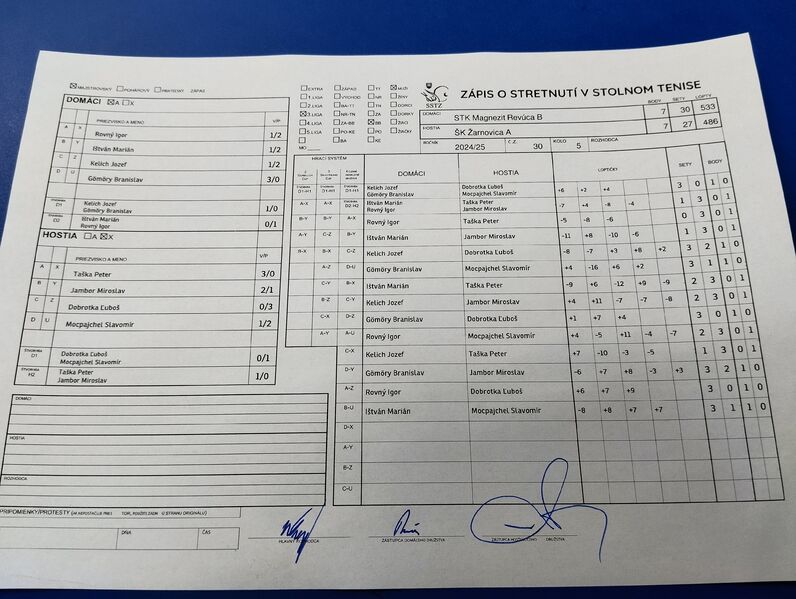 MAJSTROVSKÝ POHÁROVÝ PRIATEĽSKÝ ZÁPAS
DOMÁCI A X
PRIEZVISKO A MENO V/P
A X Rovný Igor 1/2
B Y Ištván Marián 1/2
C Z Kelich Jozef 1/2
D U Gömöry Branislav 3/0
D1 Kelich Jozef
Gömöry Branislav 1/0
D2 Ištván Marián
Rovný Igor 0/1
HOSTIA A X
PRIEZVISKO A MENO V/P
A X Taška Peter 3/0
B Y Jambor Miroslav 2/1
C Z Dobrotka Ľuboš 0/3
D U Mocpajchel Slavomír 1/2
ŠTVORHRA
D1 Dobrotka Ľuboš
Mocpajchel Slavomír 0/1
ŠTVORHRA
H2 Taška Peter
Jambor Miroslav 1/0
DOMÁCI
HOSTIA
ROZHODCA
PRIPOMIENKY/PROTESTY
DŇA ČAS
EXTRA ZÁPAD TT MUŽI
1. LIGA VÝCHOD NR ŽENY
2. LIGA BA-TT TN DORCI
3. LIGA NR-TN ZA DORKY
4. LIGA ZA-BB BB ŽIACI
5. LIGA PO-KE PO ŽIAČKY
BA KE
MO
SSTZ
ZÁPIS O STRETNUTÍ V STOLNOM TENISE
BODY SETY LOPTY
DOMÁCI STK Magnezit Revúca B 7 30 533
HOSTIA ŠK Žarnovica A 7 27 486
ROČNÍK 2024/25 Č.Z. 30 KOLO 5 ROZHODCA
HRACÍ SYSTÉM
DOMÁCI HOSTIA LOPTIČKY SETY BODY
D1-H1 D1-H1 D1-H1 Kelich Jozef Dobrotka Ľuboš
Gömöry Branislav Mocpajchel Slavomír +6 +2 +4 3 0 1 0
A-X A-X D2 H2 Ištván Marián Taška Peter
Rovný Igor Jambor Miroslav -7 +4 -8 -4 1 3 0 1
B-Y B-Y A-X Rovný Igor Taška Peter -5 -8 -6 0 3 0 1
A-Y C-Z B-Y Ištván Marián Jambor Miroslav -11 +8 -10 -6 1 3 0 1
B-X B-X C-Z Kelich Jozef Dobrotka Ľuboš -8 -7 +3 +8 +2 3 2 1 0
A-Z D-U Gömöry Branislav Mocpajchel Slavomír +4 -16 +6 +2 3 1 1 0
C-Y B-X Ištván Marián Taška Peter -9 +6 -12 +9 -9 2 3 0 1
B-Z C-Y Kelich Jozef Jambor Miroslav +4 +11 -7 -7 -8 2 3 0 1
C-X D-Z Gömöry Branislav Dobrotka Ľuboš +1 +7 +4 3 0 1 0
A-Y A-U Rovný Igor Mocpajchel Slavomír +4 -5 +11 -4 -7 2 3 0 1
C-X Kelich Jozef Taška Peter +7 -10 -3 -5 1 3 0 1
D-Y Gömöry Branislav Jambor Miroslav -6 +8 +8 -3 +3 3 2 1 0
A-Z Rovný Igor Dobrotka Ľuboš +6 +7 +9 3 0 1 0
B-U Ištván Marián Mocpajchel Slavomír -8 +8 +7 +7 3 1 1 0
D-X
A-Y
B-Z
C-U
HLAVNÝ ROZHODCA ZÁSTUPCA DOMÁCEHO DRUŽSTVA ZÁSTUPCA DRUŽSTVA